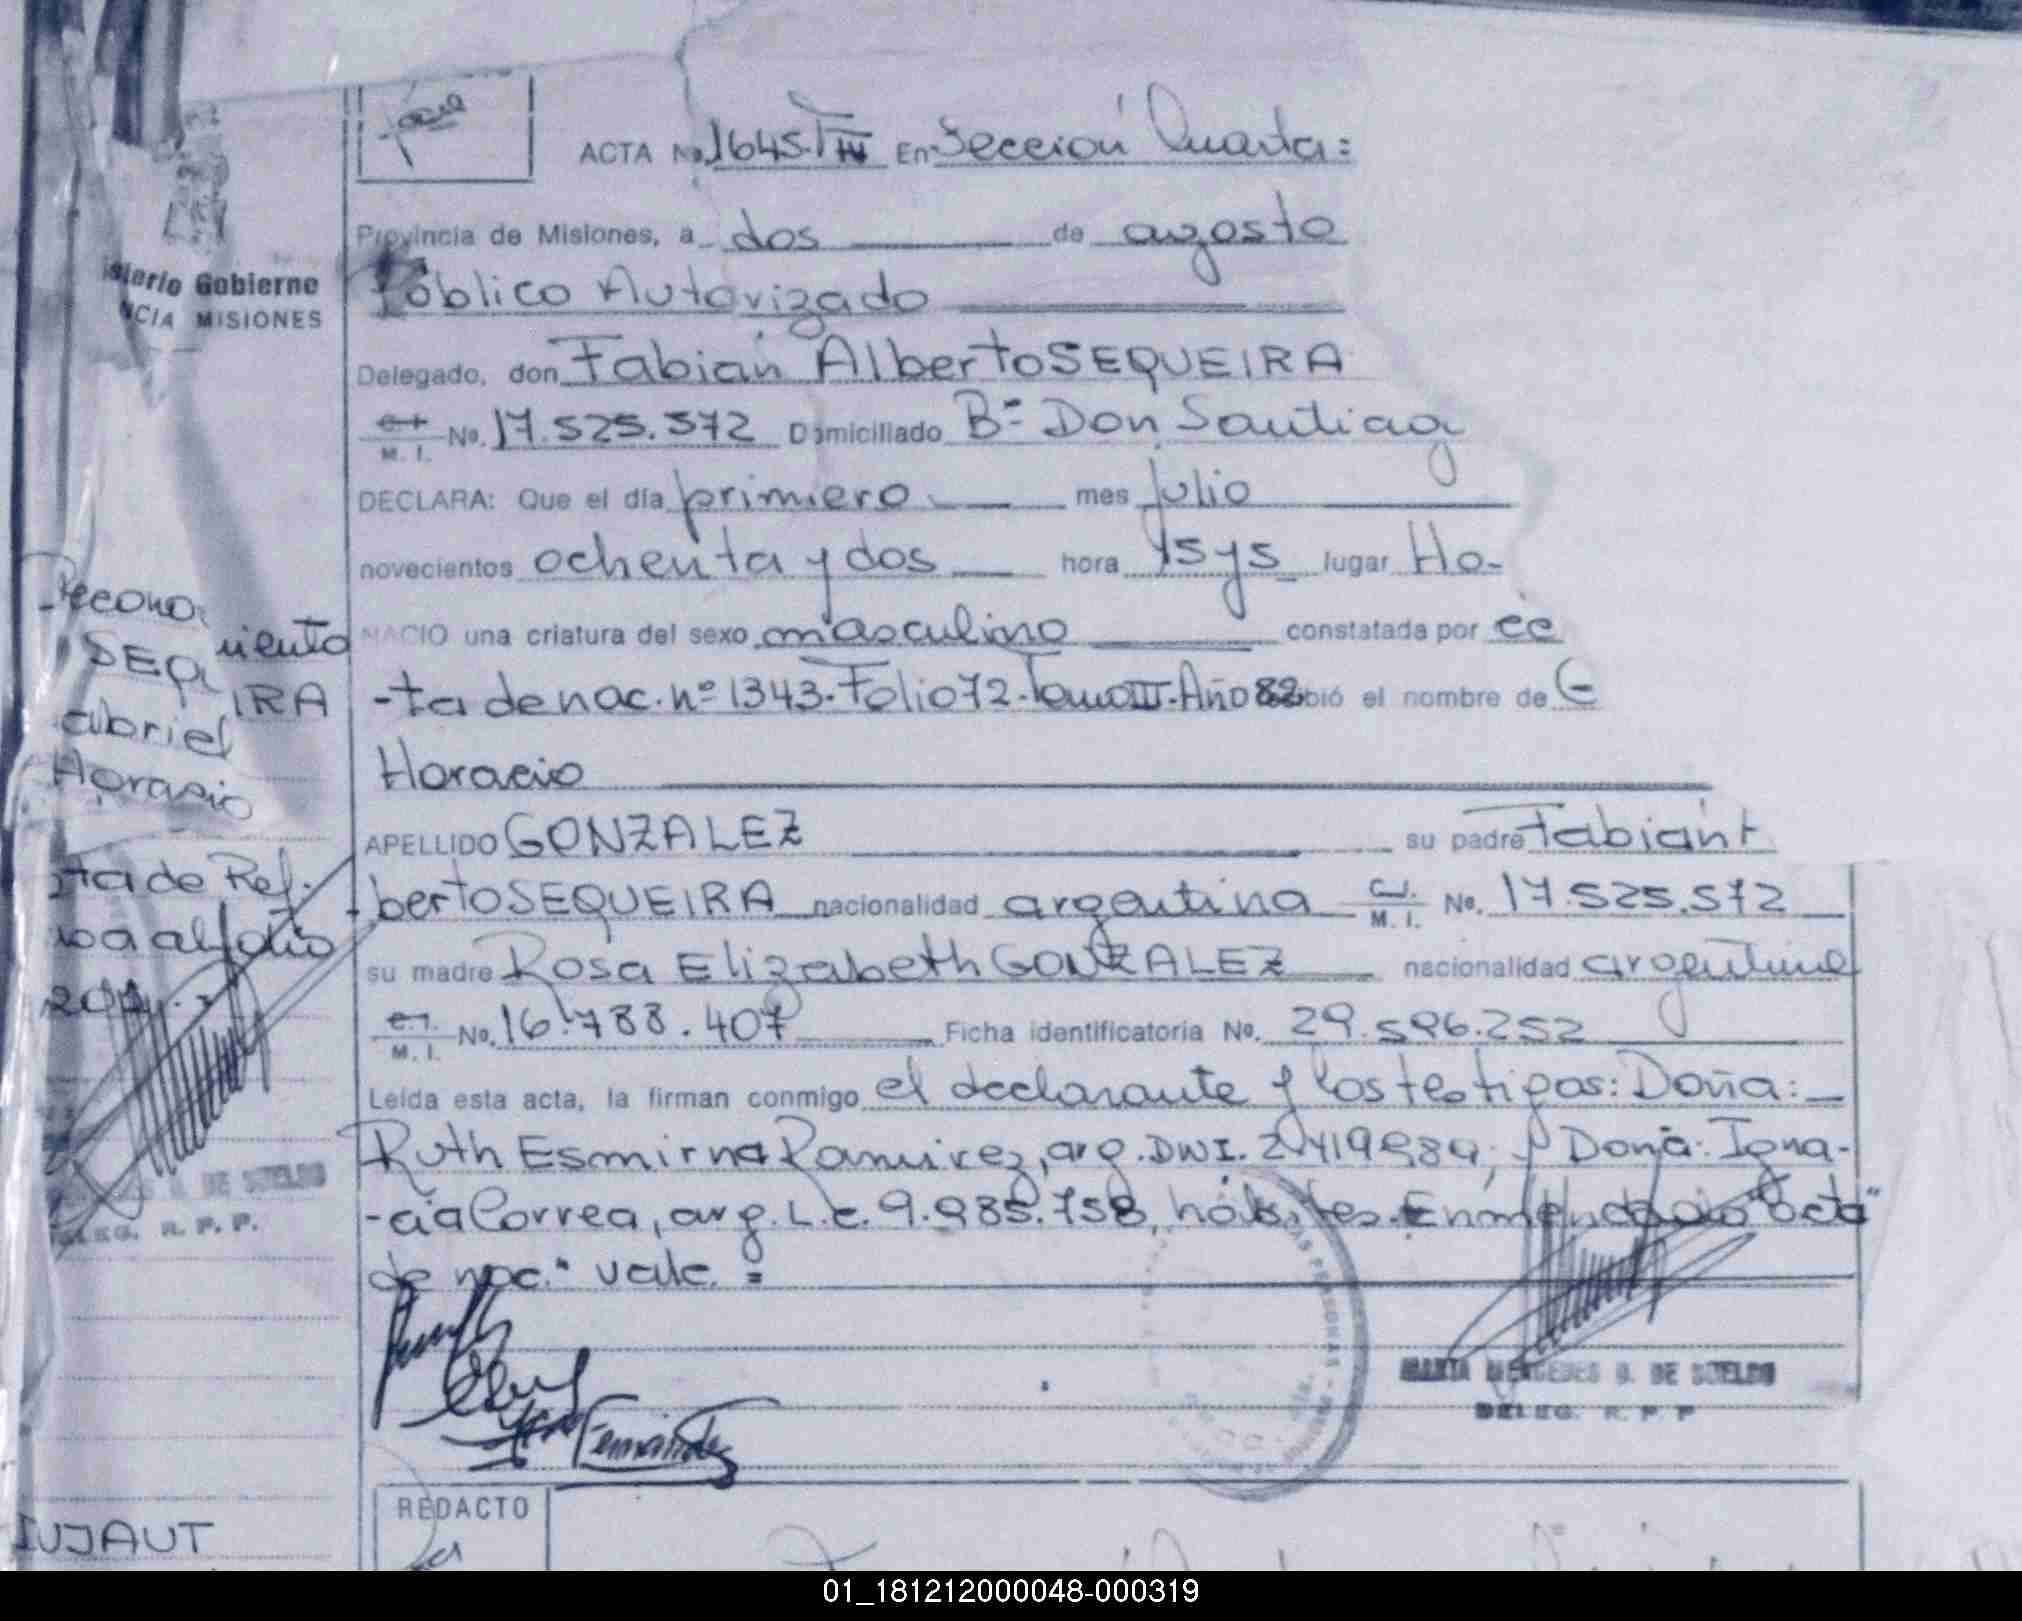 ACTA No. 1645. T III En Sección Cuarta:
Provincia de Misiones, a dos de agosto
Público Autorizado
isterio Gobierno
NCIA MISIONES
Delegado, don Fabián Alberto SEQUEIRA
C.I. M. I. No. 17.525.572 Domiciliado Bº Don Santiag
DECLARA: Que el día primero mes julio
novecientos ochenta y dos hora 15 y 5 lugar Ho-
NACIO una criatura del sexo masculino constatada por
-ta de nac. nº 1343. Folio 72. Tomo III. Año 82 bió el nombre de G
Horacio
APELLIDO GONZALEZ su padre Fabián A
berto SEQUEIRA nacionalidad argentina C.I. M. I. No. 17.525.572
su madre Rosa Elizabeth GONZALEZ nacionalidad argentina
C.I. M. I. No. 16.788.407 Ficha identificatoria No. 29.596.252
Leída esta acta, la firman conmigo el declarante y los testigos: Doña:
Ruth Esmirna Ramirez, arg. DNI. y Doña: Igna-
-cia Correa, arg. L.C. 9.985.758, hábiles. Enmendado "acta
de nac." vale. =
Recono
imiento
SEQU
IRA
abriel
Horasio
cta de Ref.
al folio
DE SOTELO
DELEG. R. P. P.
Fernández
MARTA MERCEDES G. DE SOTELO
DELEG. R. P. P
AS PERSONAS
REDACTO
IUJAUT
01_181212000048-000319